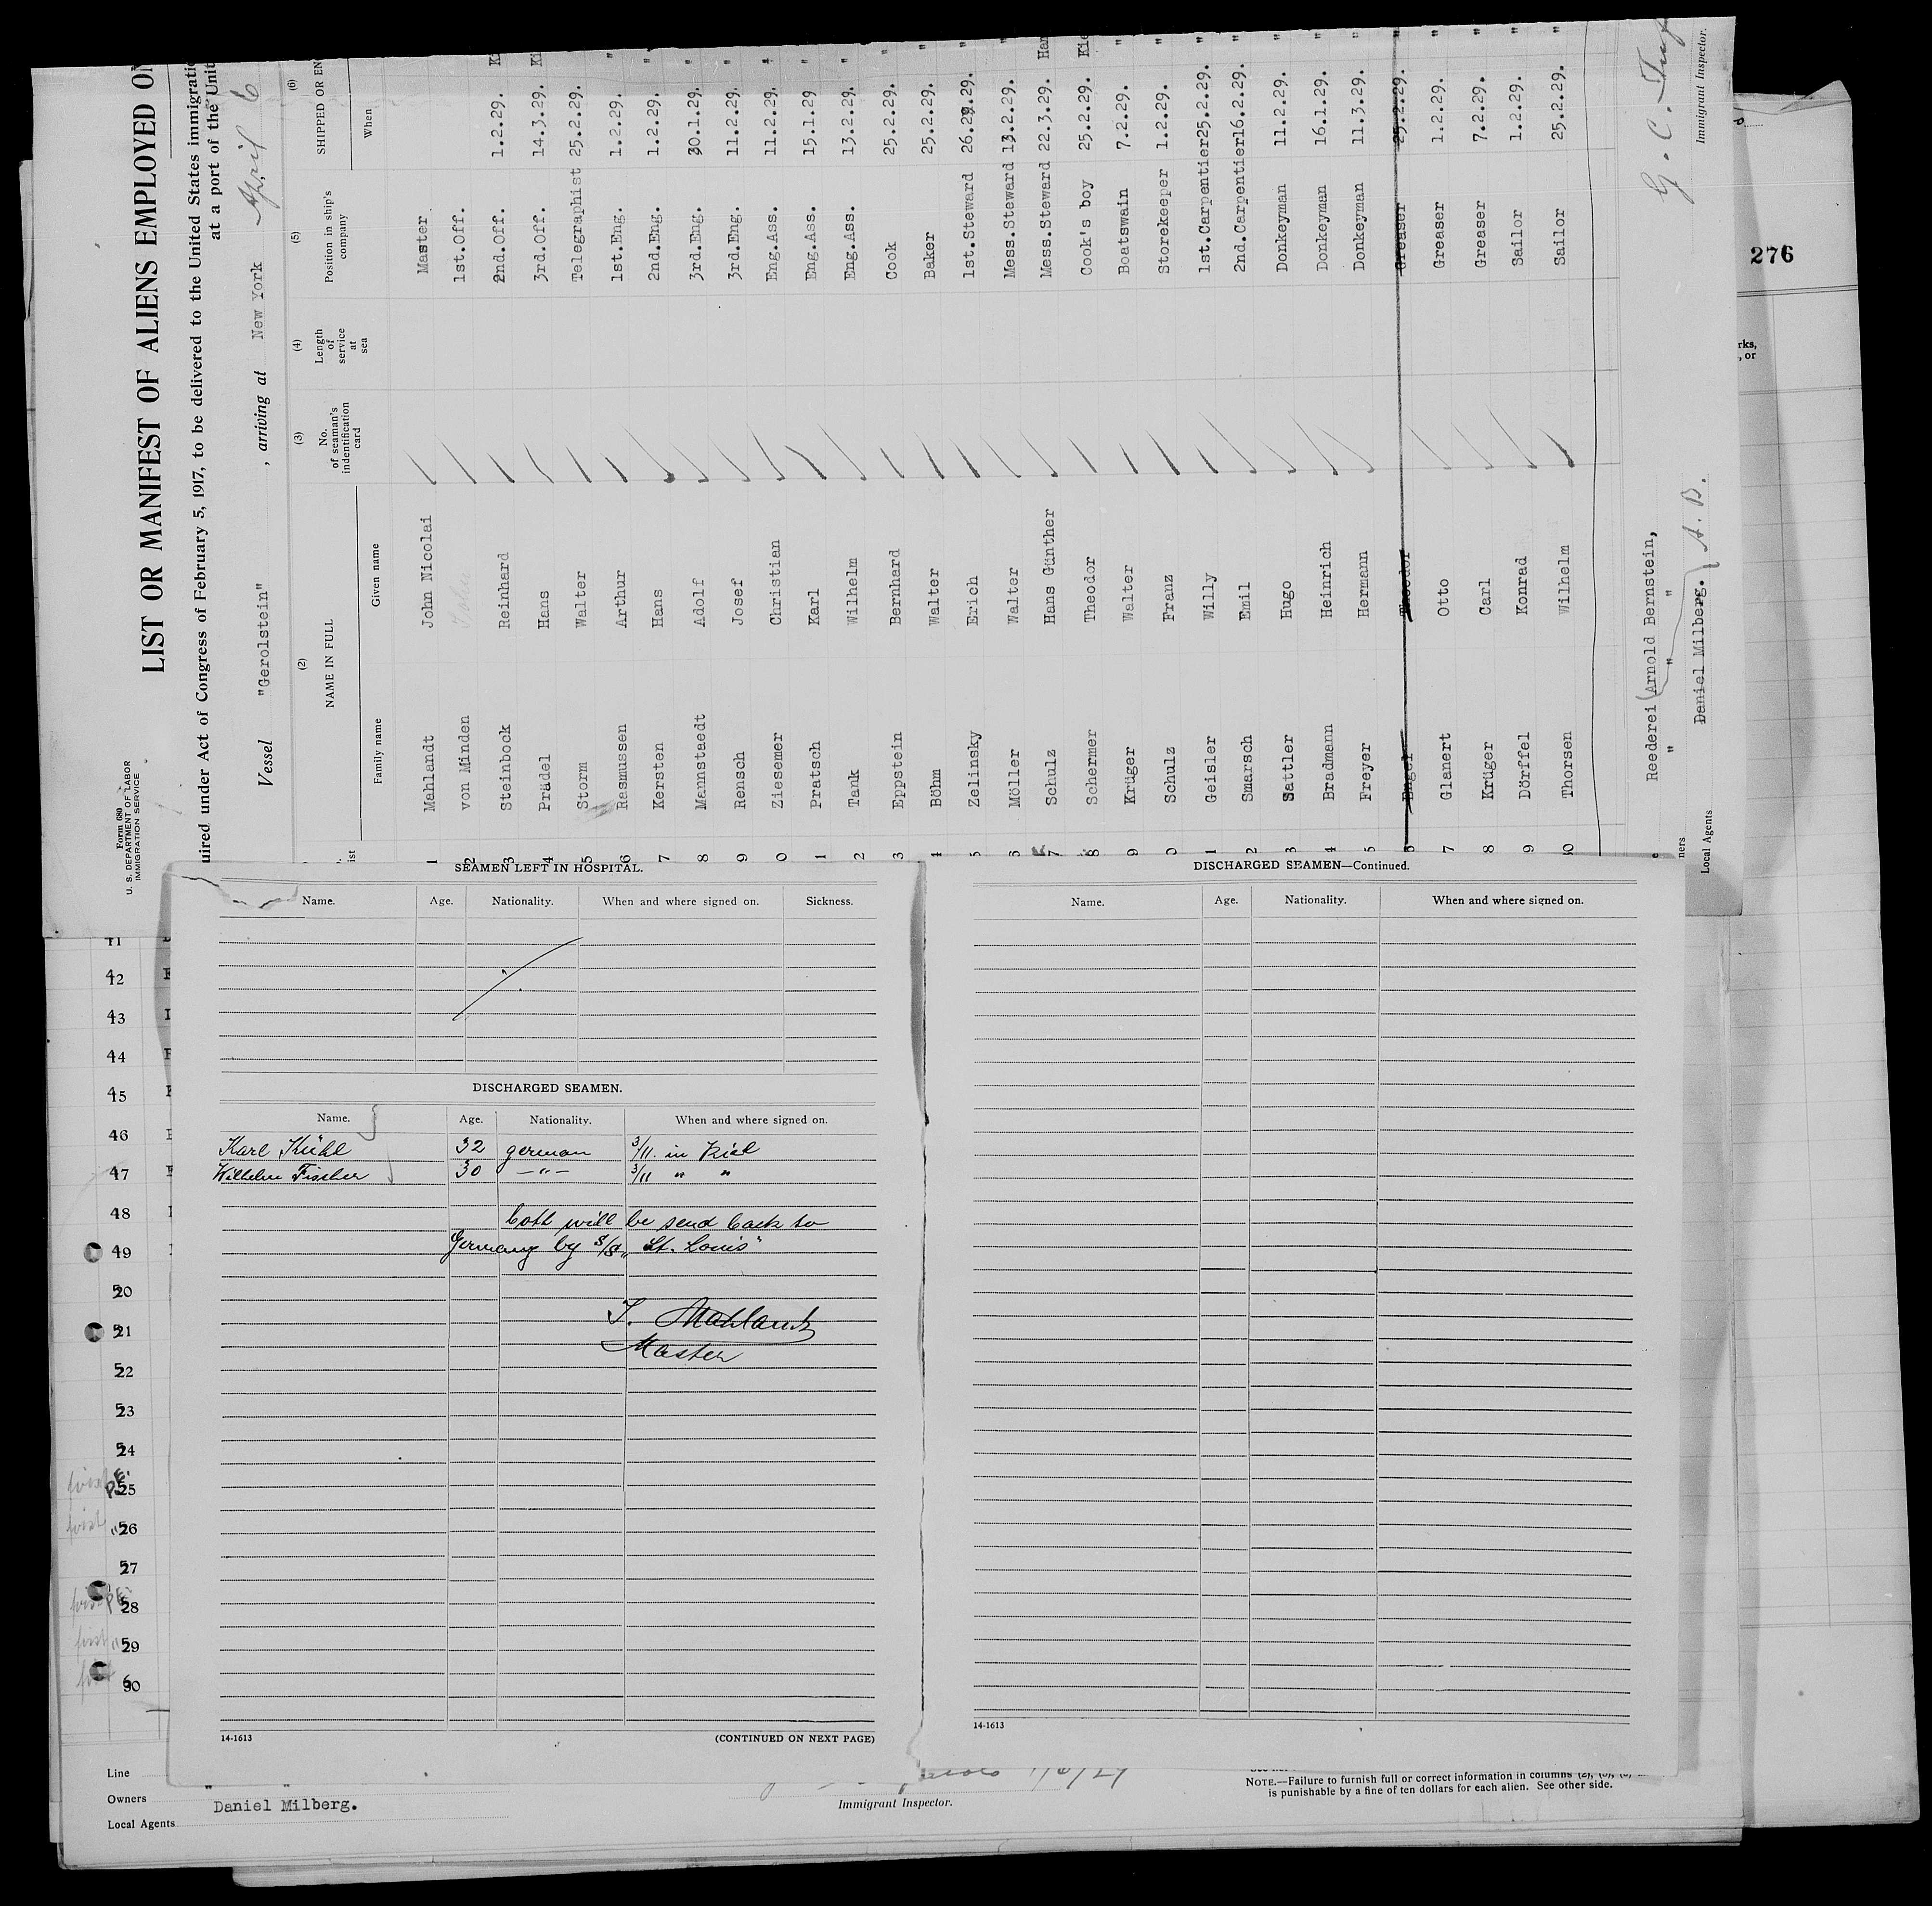 Form 680
U. S. DEPARTMENT OF LABOR
IMMIGRATION SERVICE
LIST OR MANIFEST OF ALIENS EMPLOYED ON
uired under Act of Congress of February 5, 1917, to be delivered to the United States immigratio
at a port of the Unit
Vessel "Gerolstein" , arriving at New York April 6
(2) (3) (4) (5) (6)
NAME IN FULL No. of seaman's indentification card Length of service at sea Position in ship's company SHIPPED OR EN
ist Family name Given name When
1 Mahlandt John Nicolai Master
2 von Minden John 1st.Off.
3 Steinbock Reinhard 2nd.Off. 1.2.29. K
4 Prädel Hans 3rd.Off. 14.3.29. Ki
5 Storm Walter Telegraphist 25.2.29.
6 Rasmussen Arthur 1st.Eng. 1.2.29. "
7 Kersten Hans 2nd.Eng. 1.2.29. "
8 Mannstaedt Adolf 3rd.Eng. 30.1.29. "
9 Rensch Josef 3rd.Eng. 11.2.29. "
0 Ziesemer Christian Eng.Ass. 11.2.29. "
1 Pratsch Karl Eng.Ass. 15.1.29 "
2 Tank Wilhelm Eng.Ass. 13.2.29. "
3 Eppstein Bernhard Cook 25.2.29. "
4 Böhm Walter Baker 25.2.29. "
5 Zelinsky Erich 1st.Steward 26.2.29. "
6 Möller Walter Mess.Steward 13.2.29. "
7 Schulz Hans Günther Mess.Steward 22.3.29. Ham
8 Schermer Theodor Cook's boy 25.2.29. Kie
9 Krüger Walter Boatswain 7.2.29. "
0 Schulz Franz Storekeeper 1.2.29. "
1 Geisler Willy 1st.Carpentier 25.2.29. "
2 Smarsch Emil 2nd.Carpentier 16.2.29. "
3 Sattler Hugo Donkeyman 11.2.29. "
4 Bradmann Heinrich Donkeyman 16.1.29. "
5 Freyer Hermann Donkeyman 11.3.29. "
6 Engel Theodor Greaser 25.2.29. "
7 Glanert Otto Greaser 1.2.29. "
8 Krüger Carl Greaser 7.2.29. "
9 Dörffel Konrad Sailor 1.2.29. "
30 Thorsen Wilhelm Sailor 25.2.29. "
Reederei Arnold Bernstein,
ners " " "
Local Agents Daniel Milberg. A. B.
G. C.
Immigrant Inspector.
276
rks,
, or
SEAMEN LEFT IN HOSPITAL.
Name. Age. Nationality. When and where signed on. Sickness.
DISCHARGED SEAMEN.
Name. Age. Nationality. When and where signed on.
Karl Kühl 32 german 3/11. in Kiel
Wilhelm Fischer 30 —"— 3/11 " "
both will be send back to
Germany by S/S "St. Louis"
J. Mahlandt
Master
14-1613 (CONTINUED ON NEXT PAGE)
DISCHARGED SEAMEN—Continued.
Name. Age. Nationality. When and where signed on.
14-1613
41
42
43
44
45
46
47
48
49
50
51
52
53
54
55
56
57
58
59
60
Line
Owners
Local Agents Daniel Milberg.
Immigrant Inspector.
NOTE.—Failure to furnish full or correct information in columns (2),
is punishable by a fine of ten dollars for each alien. See other side.